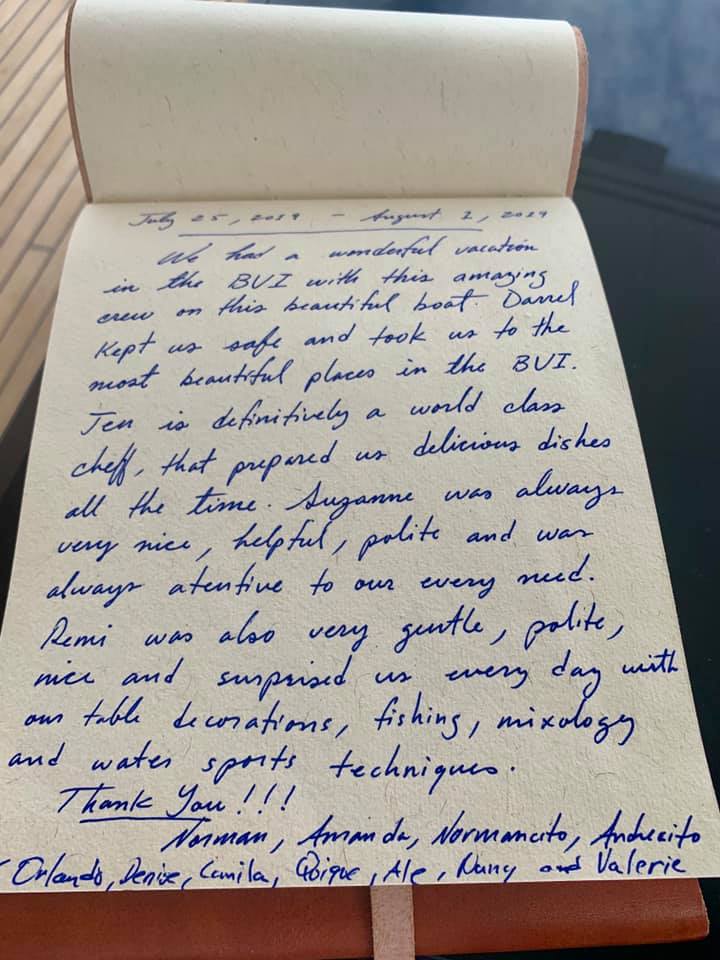 July 25, 2019 - August 1, 2019
We had a wonderful vacation
in the BVI with this amazing
crew on this beautiful boat. Darrel
Kept us safe and took us to the
most beautiful places in the BVI.
Jen is definitively a world class
cheff, that prepared us delicious dishes
all the time. Suzanne was always
very nice, helpful, polite and was
always atentive to our every need.
Remi was also very gentle, polite,
nice and surprised us every day with
our table decorations, fishing, mixology
and water sports techniques.
Thank You!!!
Norman, Amanda, Normancito, Andrecito
Orlando, Denise, Camila, Quique, Ale, Nany and Valerie